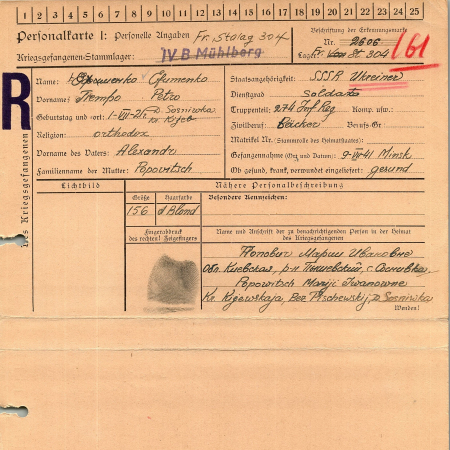 1 2 3 4 5 6 7 8 9 10 11 12 13 14 15 16 17 18 19 20 21 22 23 24 25
Personalkarte I: Personelle Angaben Fr. Stalag 304
Beschriftung der Erkennungsmarke
Nr. 2606 161
Kriegsgefangenen-Stammlager: IV B Mühlberg
Lager: Fr. St 304
R
Des Kriegsgefangenen
Name: Ofumenko
Vorname: Petro
Geburtstag und -ort: D. Sosniwka
Kr. Kijeb
Religion: orthodox
Vorname des Vaters: Alexandr
Familienname der Mutter: Popowitsch
Staatsangehörigkeit: SSSR Ukrainer
Dienstgrad: Soldat
Truppenteil: 274 Inf Reg Komp. usw.:
Zivilberuf: Bäcker Berufs-Gr.:
Matrikel Nr. (Stammrolle des Heimatstaates):
Gefangennahme (Ort und Datum): 9-VII-41 Minsk
Ob gesund, krank, verwundet eingeliefert: gesund
Lichtbild
Nähere Personalbeschreibung
Größe Haarfarbe Besondere Kennzeichen:
156 d'Blond
Fingerabdruck
des rechten! Zeigefingers
Name und Anschrift der zu benachrichtigenden Person in der Heimat
des Kriegsgefangenen
Попович Мария Ивановне
Обл. Киевская, р-н г. Сосривка
Popowitsch Mariji Iwanowne
Kr. Kijewskaja, Bez. D. Sosniwka
Wenden!